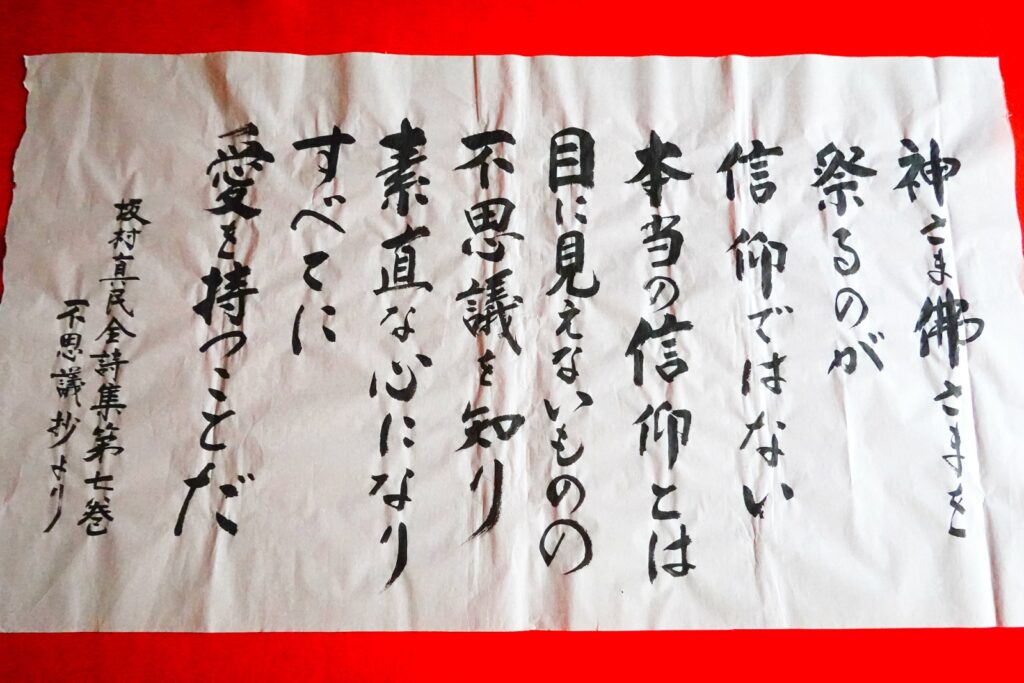 神さま佛さまを
祭るのが
信仰ではない
本当の信仰とは
目に見えないものの
不思議を知り
素直な心になり
すべてに
愛を持つことだ
坂村真民全詩集第七巻
不思議抄より